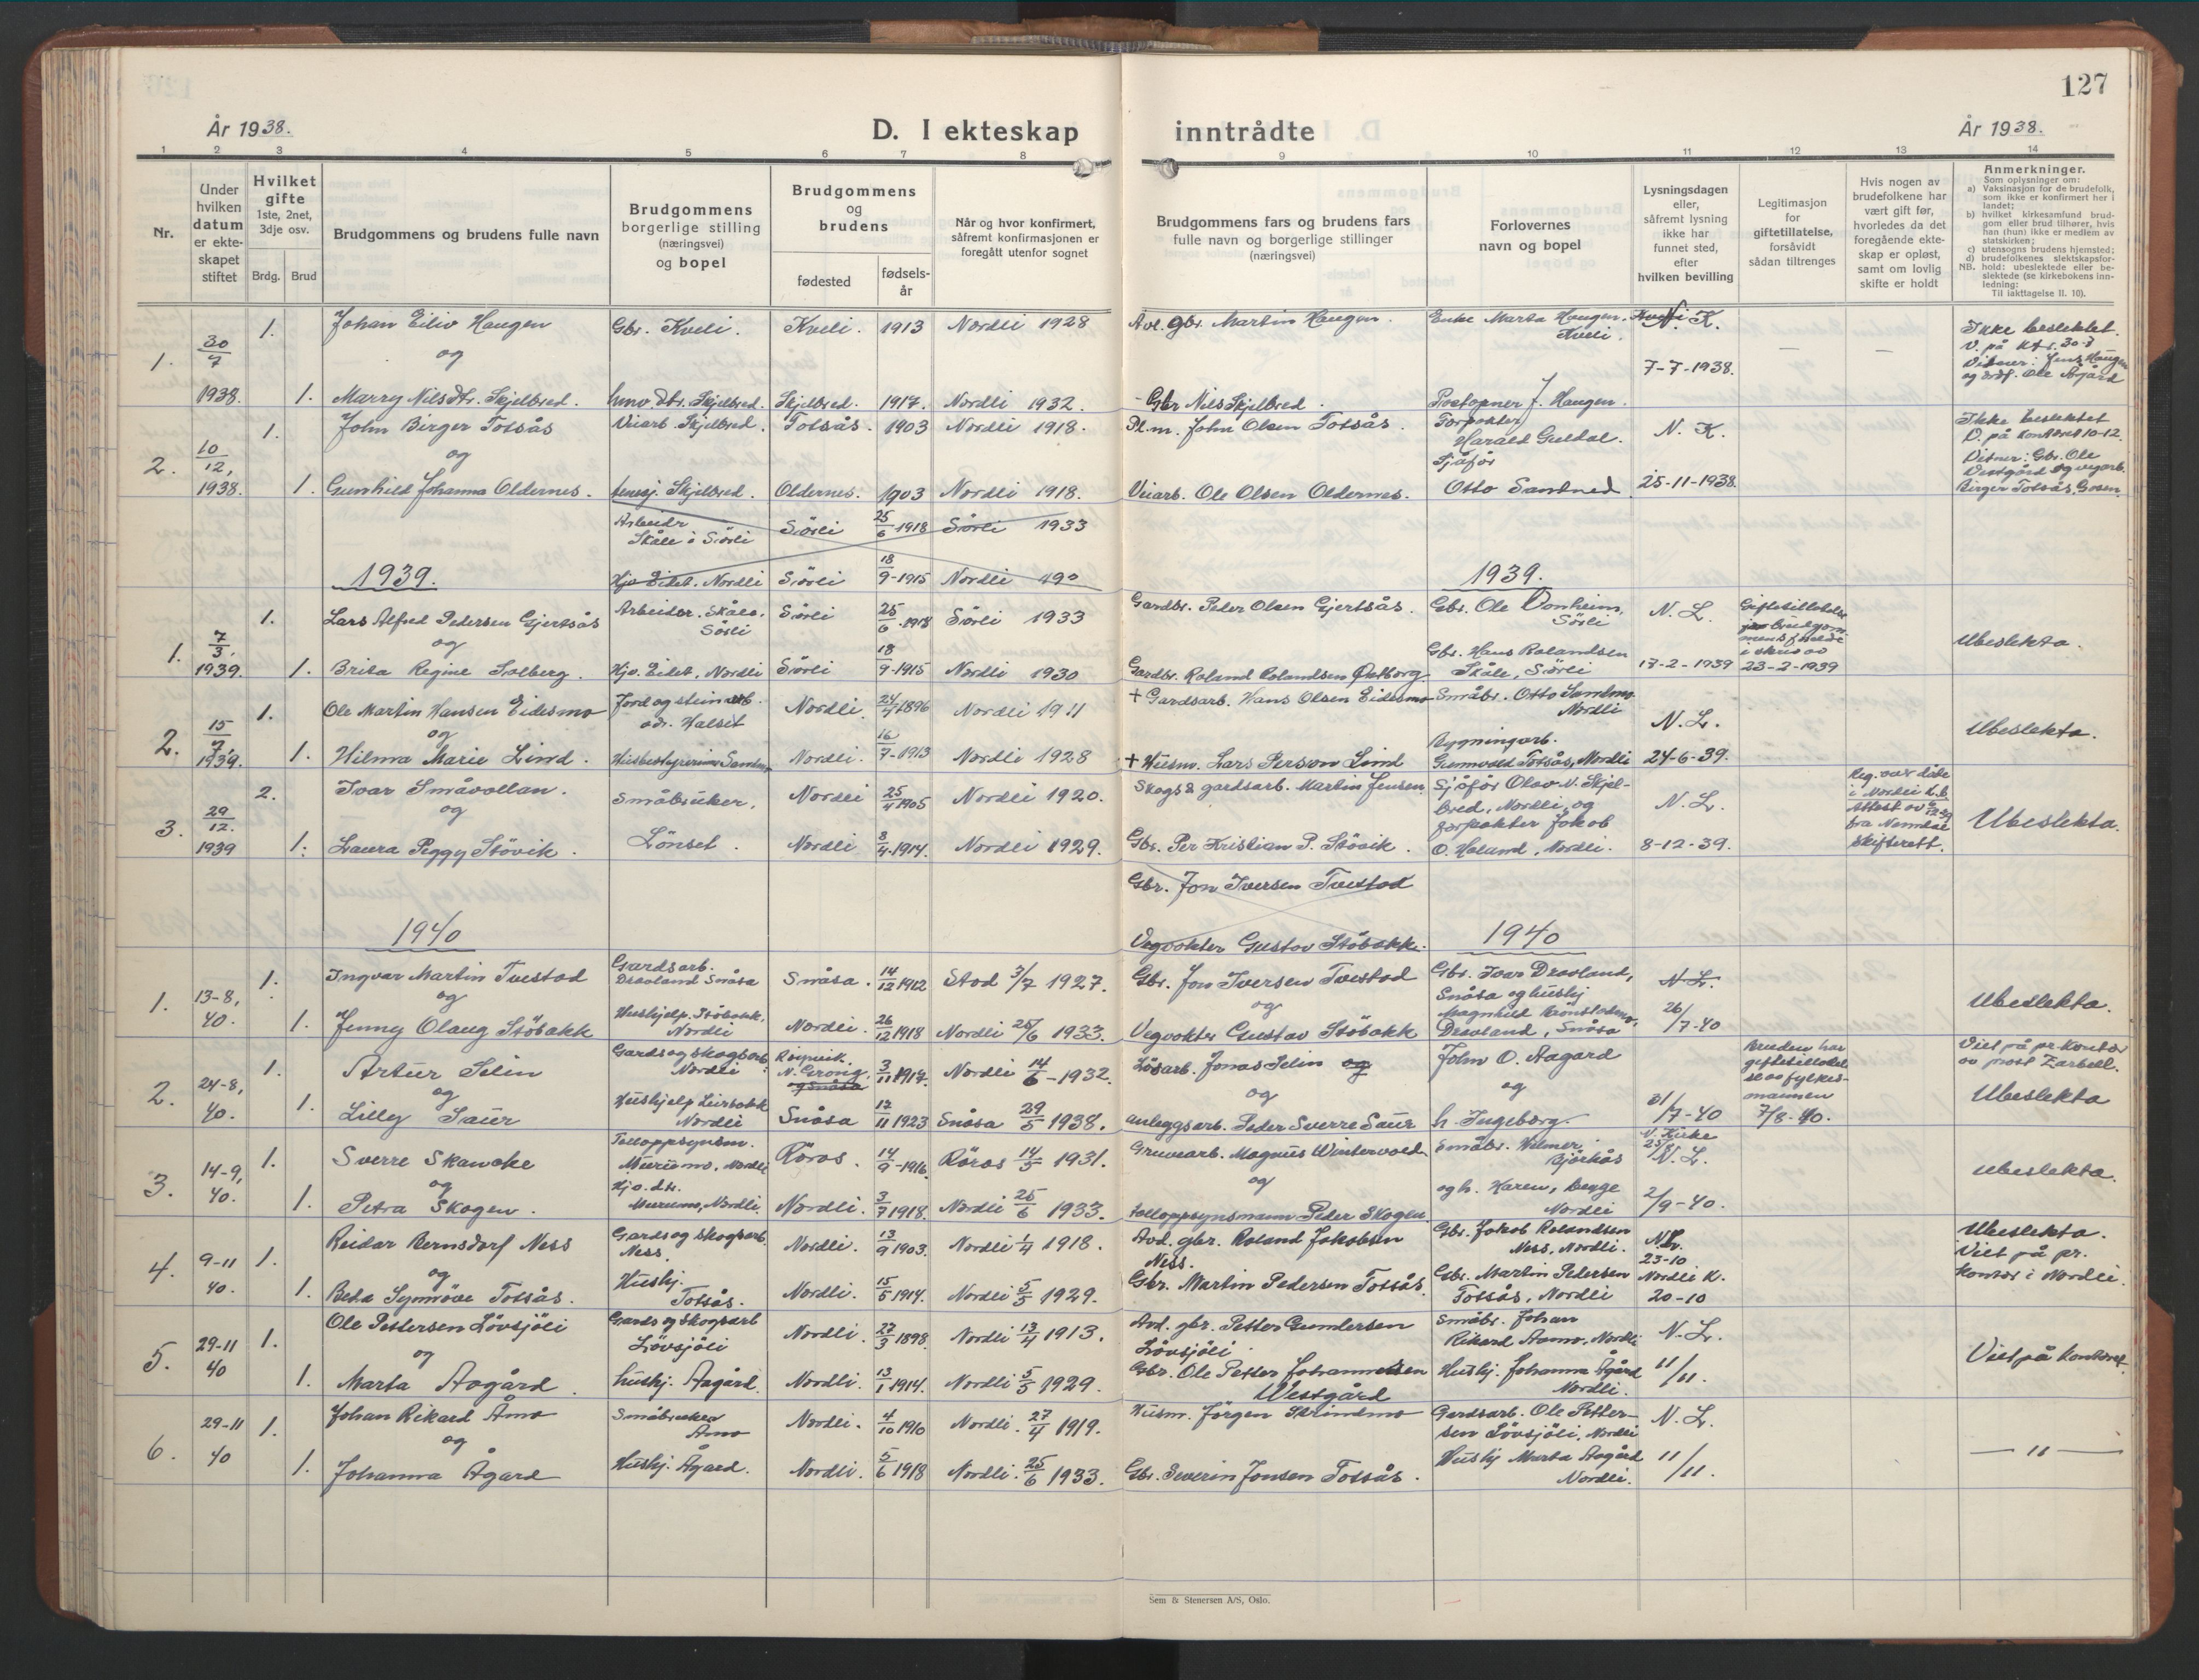 127
År 1938.
D. I ekteskap inntrådte
År 1938.
1 2 3 4 5 6 7 8 9 10 11 12 13 14
Nr.
Under hvilken datum er ekte-skapet stiftet
Hvilket gifte
1ste, 2net, 3dje osv.
Brdg. Brud
Brudgommens og brudens fulle navn
Brudgommens borgerlige stilling (næringsvei) og bopel
Brudgommens og brudens
fødested
fødsels-år
Når og hvor konfirmert, såfremt konfirmasjonen er foregått utenfor sognet
Brudgommens fars og brudens fars fulle navn og borgerlige stillinger (næringsvei)
Forlovernes navn og bopel
Lysningsdagen eller, såfremt lysning ikke har funnet sted, efter hvilken bevilling
Legitimasjon for giftetillatelse, forsåvidt sådan tiltrenges
Hvis nogen av brudefolkene har vært gift før, hvorledes da det foregående ekte-skap er opløst, samt om lovlig skifte er holdt
Anmerkninger.
Som oplysninger om:
a) Vaksinasjon for de brudefolk, som ikke er konfirmert her i landet;
b) hvilket kirkesamfund brud-gom eller brud tilhører, hvis han (hun) ikke er medlem av statskirken;
c) utensogns brudens hjemsted;
d) brudefolkenes slektskapsfor-
NB. hold: ubeslektede eller be-slektede (se kirkebokens inn-ledning:
Til iakttagelse II. 10).
1. 30/7 1938. 1. Johan Eiliv Haugen Gbr. Kveli. Kveli. 1913 Nordli 1928 Gbr. Martin Haugen. Enke Marta Haugen. Kveli. N. K. 7-7-1938. — —
og
1. Marry Nilsdtr. Skjelbred. Skjelbred. Skjelbred. 1917. Nordli 1932. Gbr Nils Skjelbred. Postopner J. Haugen.
Ikke beslektet.
V. på ktr. 30-7
Vitner: Jens Haugen
og Ole Ågård
2. 10/12, 1938. 1. John Birger Totsås Veiarb. Skjelbred. Totsås. 1903 Nordli 1918. Pl.m. John Olsen Totsås. Forpakter Harald Guldal. N. K.
og
1. Gunhild Johanna Oldernes. Skjelbred. Oldernes. 1903 Nordli 1918. Veiarb. Ole Olsen Oldernes. Sjåfør Otto Sandned 25-11-1938.
Ikke beslektet
V. på kontoret 10-12.
Vitner: Gbr. Ole
Vestgård og vegarb.
Birger Totsås, Gosen.
Arbeidr Skåle i Sörli Sörli 25/6 1918 Sörli 1933
Hjv. Eidet. Nordli Sörli 18/9-1915 Nordli
1939. 1939.
1. 7/3. 1939. 1. Lars Alfred Pedersen Gjertsås Arbeider. Skåle. Sörli Sörli 25/6. 1918 Sörli 1933 Gardbr. Peder Olsen Gjertsås. Gbr. Ole Donheim, Sörli N. L.
og
1. Brita Regine Solberg. Hjv. Eidet, Nordli Sörli 18/9-1915 Nordli 1930 Gardbr. Roland Rolandsen Gbr. Hans Rolandsen Skåle, Sörli 17-2-1939 23-2-1939 Ubeslekta.
2. 15/7, 1939. 1. Ole Martin Hansen Eidesmo Jord og steinarb. Halset Nordli. 24/4 1896 Nordli 1911 + Gardsarb. Hans Olsen Eidesmo Småbr. Otto Sandmo Nordli N. L.
og
1. Hilma Marie Lind. Nordli. 16/7-1913 Nordli 1928 + Husm. Lars Person Lind Bygningarb. Gunnvald Totsås, Nordli 24-6-39. Ubeslekta.
3. 29/12. 1939 2. Ivar Småvollan. Småbruker, Nordli 25/4 1905 Nordli 1920. Skogs & gardsarb. Martin Jensen Sjåfør Olav N. Skjel-bred, Nordli, og N. L.
og
1. Laura Peggy Stövik. Lönset. Nordli 8/4 1914. Nordli 1929. Gbr. Per Kristian P. Stövik. forpakter Jakob O. Haland, Nordli. 8-12-39. fra Namdal skifterett. Ubeslekta.
Gbr. Jon Iversen Tvestad
Vegvokter Gustav Stöbakk.
1940 1940
1. 13-8, 40. 1. Ingvar Martin Tvestad Gardsarb. Dravland Snåsa Snåsa. 14/12 1912 Stod 3/7 1927. Gbr. Jon Iversen Tvestad Gbr. Ivar Dravland, Snåsa og hushj N. L.
og og
1. Jenny Olaug Stöbakk Hushjelp. Stöbakk, Nordli Nordli. 26/12 1918 Nordli 25/6 1933. Vegvokter Gustav Stöbakk Magnhild Dravland, Snåsa 26/7-40 Ubeslekta.
2. 24-8, 40. 1. Artur Selin Gards og skogsarb Nordli N. Grong, og Snåsa 3/11 1917. Nordli 14/6-1932. Lösarb. Jonas Selin og John O. Aagard
og og og
1. Lilly Saur Hushjelp Leirbakk Nordli Snåsa 17/11 1923 Snåsa 29/5 1938. anleggsarb. Peder Sverre Saur h. Ingeborg. 31/7-40
Bruden har giftetillatel-se av fylkes-mannen 7/8-40.
Viet på pr. kontor av prost Zarbell. Ubeslekta
3. 14-9, 40. 1. Sverre Skancke Tolloppsynsm. Murumo, Nordli Röros. 14/9-1916 Röros 14/5 1931. Gruvearb. Magnus Wintervold Småbr. Hilmer Björkås V. Kirke 25/8 N. L.
og og
1. Petra Skogen. Hjv. dtr. Murumo, Nordli. Nordli. 3/7 1918. Nordli 25/6 1933. tolloppsynsmann Peder Skogen og h. Karen, begge Nordli 2/9-40. ubeslekta.
4. 9-11 40. 1. Reidar Bernsdorf Ness Gards og skogsarb. Ness. Nordli. 13/9 1903. Nordli 1/4 1918. Avd. gbr. Roland Jakobsen Ness. Gbr. Jakob Rolandsen Ness, Nordli. N. L. 23-10
og
1. Beda Synnöve Totsås. Hushj. Totsås. Nordli. 15/5 1914. Nordli 5/5 1929. Gbr. Martin Pedersen Totsås. Gbr. Martin Pedersen Totsås, Nordli Nordli K. 20-10
Ubeslekta. Viet på pr. kontor i Nordli.
5. 29-11 40 1. Ole Pettersen Lövsjöli Gards og skogsarb Lövsjöli Nordli. 27/3 1898. Nordli 13/4 1913. Avd. gbr. Petter Gundersen Lövsjöli Småbr. Johan Rikard Aamo, Nordli N. L.
og
1. Marta Aagård. hushj. Aagård. Nordli. 13/1 1914. Nordli 5/5 1929. Gbr. Ole Petter Johannesen Westgård Hushj. Johanna Ågård Nordli. 11/11. Viet på kontoret
6. 29-11 40 1. Johan Rikard Åmo Småbruker Åmo Nordli. 4/10 1910 Nordli. 27/4 1919. Husm. Jörgen Skrindmo Gardsarb. Ole Petter-sen Lövsjöli, Nordli N. L.
og
1. Johanna Ågard Hushj. Ågard. Nordli. 5/6 1918 Nordli. 25/6 1933. Gbr. Severin Jonsen Totsås. Hushj Marta Aagård Nordli. 11/11. — " —
Sem & Stenersen A/S, Oslo.